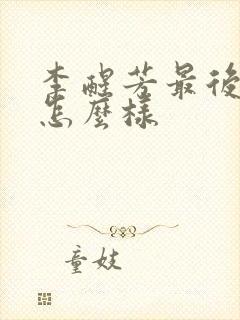 李醒芳最後
怎麼樣
童妓